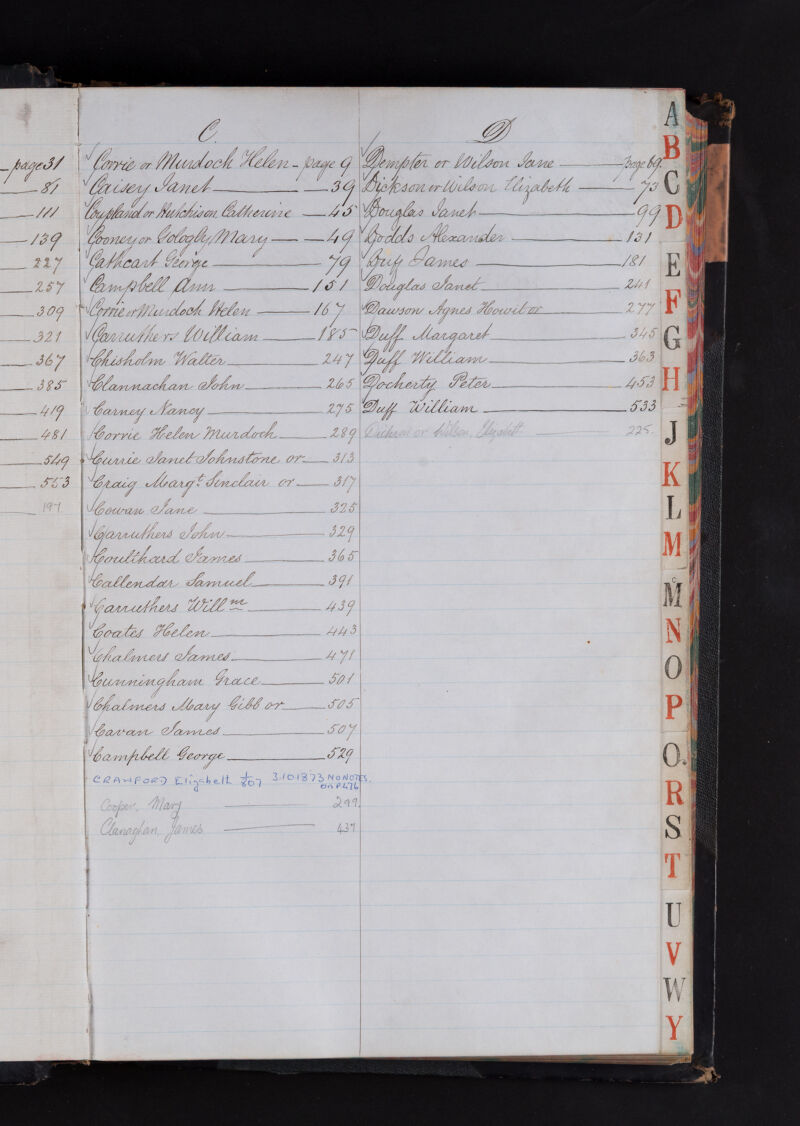 page 31
81
111
139
227
257
309
321
367
385
419
481
549
553
197
C.
Corrie or Murdoch Helen - page 9
Caisey Janet 39
Coupland or Hutchison Catherine 45
Cooney or Gologly Mary 49
Cathcart George 79
Campbell Ann 151
Corrie or Murdoch Helen 167
Carruthers William 185
Chisholm Walter 247
Clannachan John 265
Carney Nancy 275
Corrie Helen Murdoch 289
Currie Janet Johnstone or 313
Craig Margt. Sinclair or 317
Cowan Jane 325
Carruthers John 329
Coulthard James 365
Callendar Samuel 391
Carruthers Willm 439
Coates Helen 443
Chalmers James 471
Cunningham Grace 501
Chalmers Mary Gibb or 505
Cavan James 507
Campbell George 529
CRAWFORD Elizabeth 1/807 3.10.1873 NO NOTES. ON P476
Cooper, Mary 299
Clanaghan, James 437
D
Dempster or Wilson Jane page 69.
Dickson or Wilson Elizabeth 73
Douglas Janet 99
Dodds Alexander 131
Duff James 181
Douglas Janet 241
Dawson Agnes Howit or 277
Duff Margaret 345
Duff William 363
Docherty Peter 453
Duff William 533
Dickson or Wilson, Elizabeth 225.
A
B
C
D
E
F
G
H
J
K
L
M
Mc
N
O
P
Q.
R
S
T
U
V
W
Y